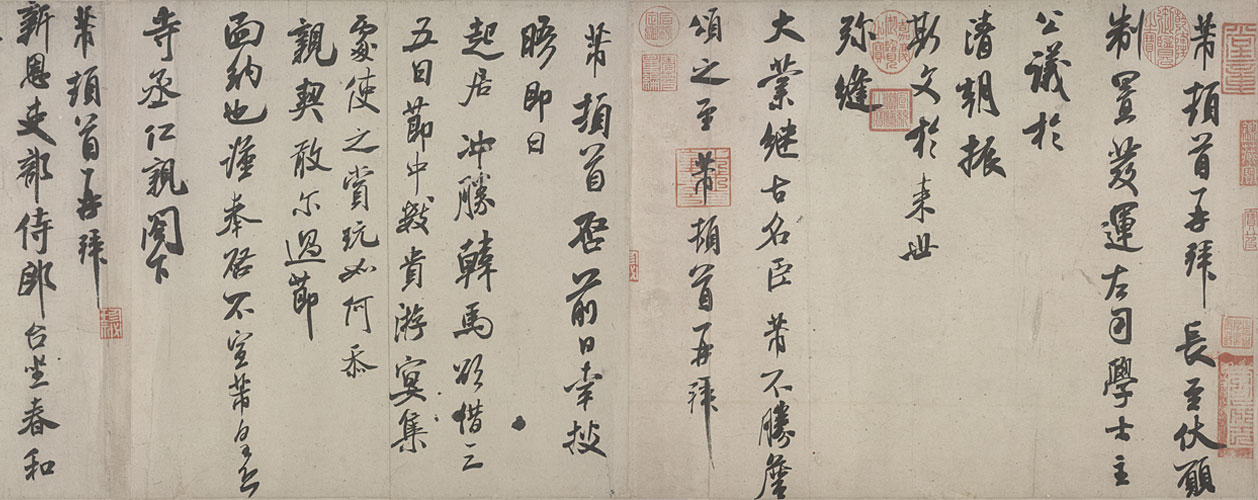 芾頓首再拜長至伏願
制置發運左司學士主
公議於
清朝振
斯文於來世
弥縫
大業繼古名臣芾不勝詹
頌之至芾頓首再拜
芾頓首啓前日幸披
晤即日
起居冲勝韓馬欲借三
五日節中數貴游宴集
處使之賞玩如何忝
親契敢尓過節
面納也謹奉啓不宣芾皇恐
寺丞仁親閣下
芾頓首再拜
新恩吏部侍郎台坐春和